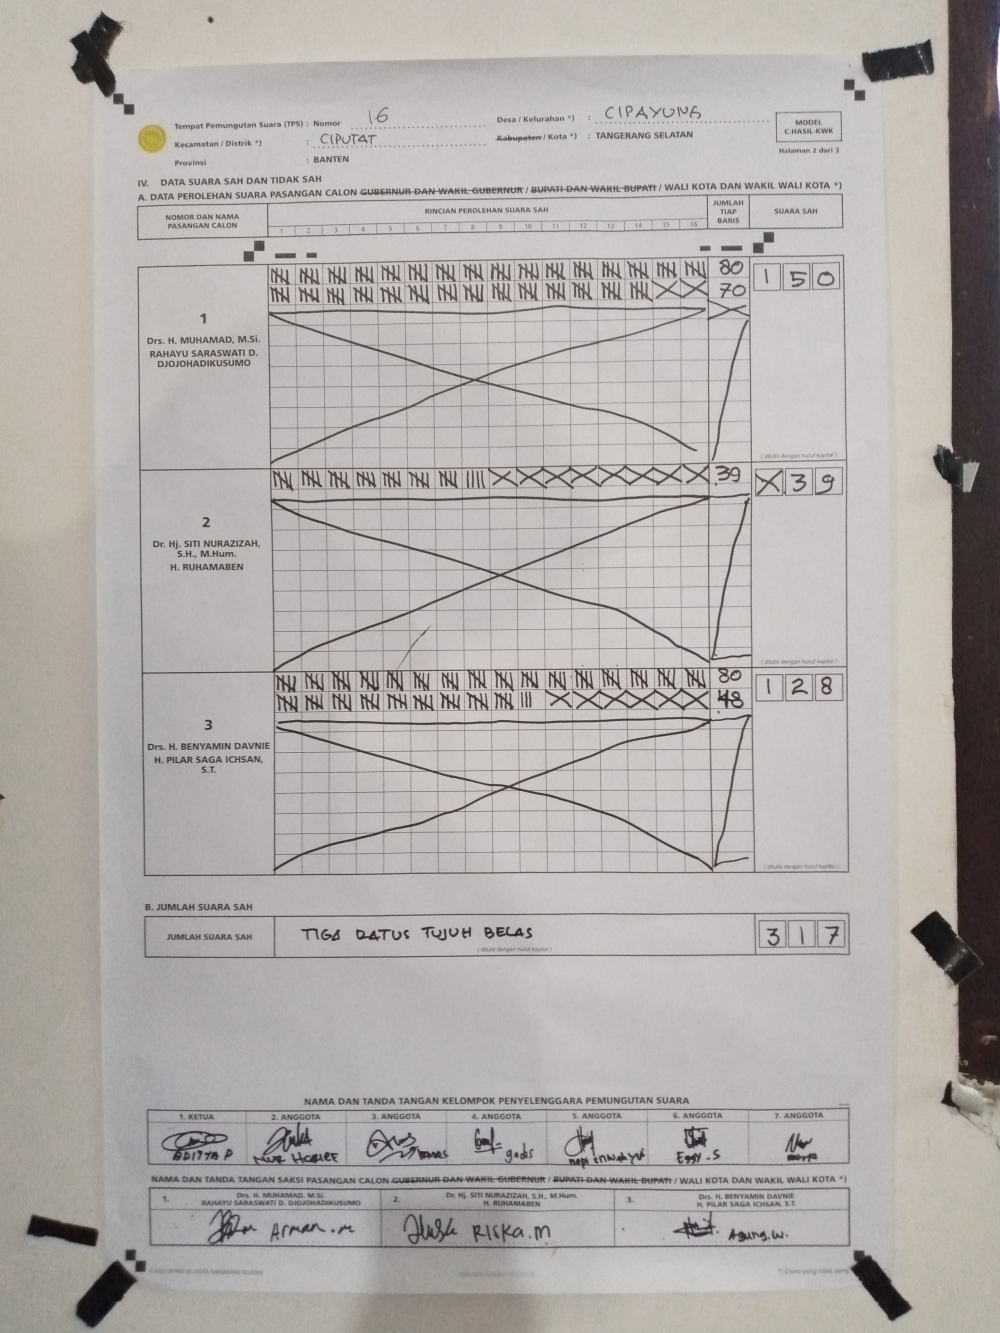 Tempat Pemungutan Suara (TPS) : Nomor 16
Desa / Kelurahan *) : CIPAYUNG
Kecamatan / Distrik *) : CIPUTAT
Kabupaten / Kota *) : TANGERANG SELATAN
Provinsi : BANTEN
MODEL
C.HASIL-KWK
Halaman 2 dari 3
IV. DATA SUARA SAH DAN TIDAK SAH
A. DATA PEROLEHAN SUARA PASANGAN CALON GUBERNUR DAN WAKIL GUBERNUR / BUPATI DAN WAKIL BUPATI / WALI KOTA DAN WAKIL WALI KOTA *)
NOMOR DAN NAMA
PASANGAN CALON
RINCIAN PEROLEHAN SUARA SAH
1 2 3 4 5 6 7 8 9 10 11 12 13 14 15 16
JUMLAH
TIAP
BARIS
SUARA SAH
1
Drs. H. MUHAMAD, M.Si.
RAHAYU SARASWATI D.
DJOJOHADIKUSUMO
80
70
150
(ditulis dengan huruf kapital)
2
Dr. Hj. SITI NURAZIZAH,
S.H., M.Hum.
H. RUHAMABEN
39
X39
(ditulis dengan huruf kapital)
3
Drs. H. BENYAMIN DAVNIE
H. PILAR SAGA ICHSAN,
S.T.
80
48
128
(ditulis dengan huruf kapital)
B. JUMLAH SUARA SAH
JUMLAH SUARA SAH
TIGA RATUS TUJUH BELAS
(ditulis dengan huruf kapital)
317
NAMA DAN TANDA TANGAN KELOMPOK PENYELENGGARA PEMUNGUTAN SUARA
1. KETUA 2. ANGGOTA 3. ANGGOTA 4. ANGGOTA 5. ANGGOTA 6. ANGGOTA 7. ANGGOTA
ADITYA P
gadis
Eggy.S
NAMA DAN TANDA TANGAN SAKSI PASANGAN CALON GUBERNUR DAN WAKIL GUBERNUR / BUPATI DAN WAKIL BUPATI / WALI KOTA DAN WAKIL WALI KOTA *)
1. Drs. H. MUHAMAD, M.Si.
RAHAYU SARASWATI D. DJOJOHADIKUSUMO
2. Dr. Hj. SITI NURAZIZAH, S.H., M.Hum.
H. RUHAMABEN
3. Drs. H. BENYAMIN DAVNIE
H. PILAR SAGA ICHSAN, S.T.
Arman.m
RISKa.m
Agung.W.